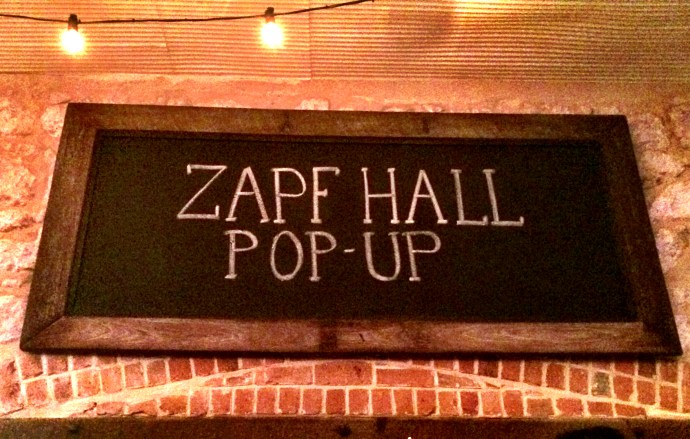 ZAPF HALL
POP-UP